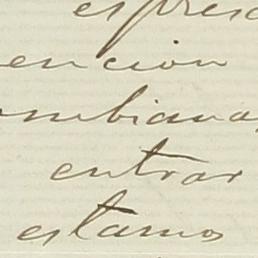 espres
encion
ombiana
entrar
estamos